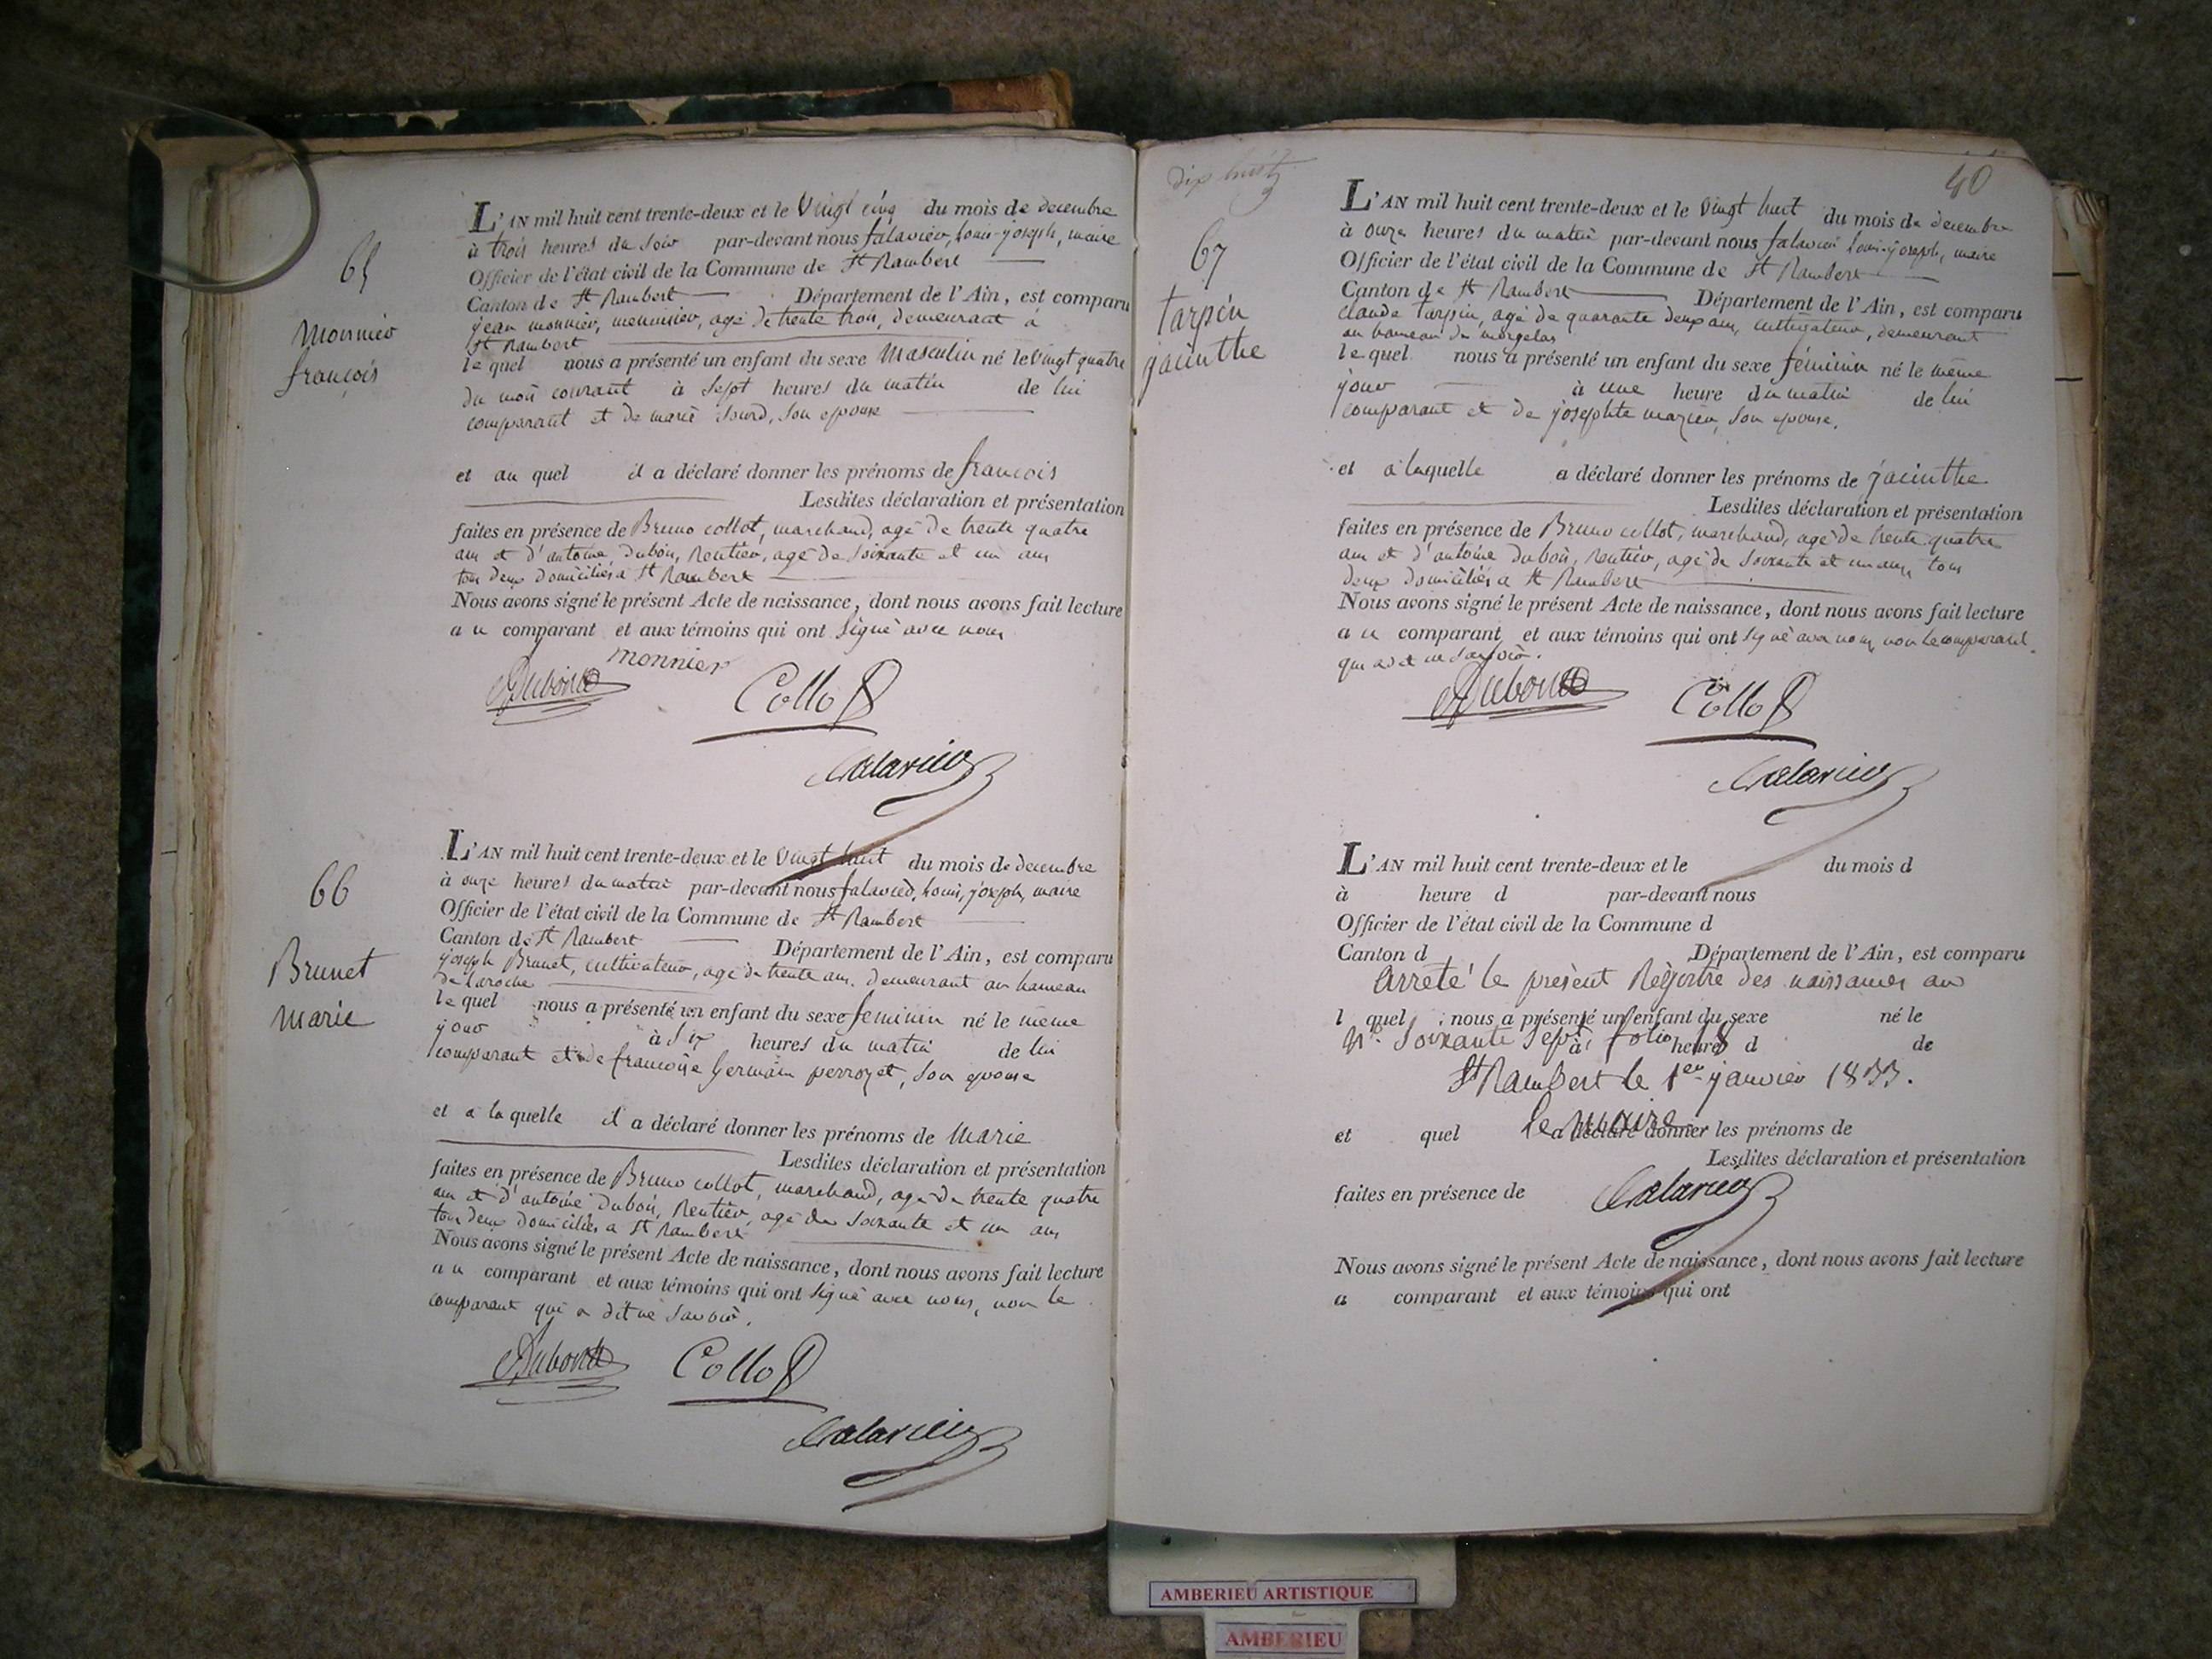 65
Monnier
françois
L'AN mil huit cent trente-deux et le vingt cinq du mois de decembre
à trois heures du soir par-devant nous falavier, louis-joseph, maire
Officier de l'état civil de la Commune de St Rambert
Canton de St Rambert Département de l'Ain, est comparu
jean monnier, menuisier, agé de trente trois, demeurant à
St Rambert
le quel nous a présenté un enfant du sexe Masculin né le vingt quatre
du mois courant à sept heures du matin de lui
comparant et de marie sourd, son epouse
et au quel il a déclaré donner les prénoms de francois
Lesdites déclaration et présentation
faites en présence de Bruno collot, marchand, agé de trente quatre
ans et d'antoine dubois, rentier, agé de soixante et un ans
tous deux domiciliés a St Rambert
Nous avons signé le présent Acte de naissance, dont nous avons fait lecture
au comparant et aux témoins qui ont signé avec nous
monnier
Dubois Collot
falavier
66
Brunet
Marie
L'AN mil huit cent trente-deux et le vingt huit du mois de decembre
à onze heures du matin par-devant nous falavier, louis, joseph, maire
Officier de l'état civil de la Commune de St Rambert
Canton de St Rambert Département de l'Ain, est comparu
joseph Brunet, cultivateur, agé de trente ans. demeurant au hameau
de laroche
le quel nous a présenté un enfant du sexe feminin né le même
jour à six heures du matin de lui
comparant et de francoise Germain perrozet, son epouse
et a la quelle il a déclaré donner les prénoms de Marie
Lesdites déclaration et présentation
faites en présence de Bruno collot, marchand, agé de trente quatre
ans et d'antoine dubois, Rentier, agé de soixante et un ans
tous deux domiciliés a St Rambert
Nous avons signé le présent Acte de naissance, dont nous avons fait lecture
au comparant et aux témoins qui ont signé avec nous, non le
comparant qui a dit ne savoir.
Dubois Collot
falavier
dix huit
40
67
tarpin
jacinthe
L'AN mil huit cent trente-deux et le vingt huit du mois de decembre
à onze heures du matin par-devant nous falavier louis-joseph, maire
Officier de l'état civil de la Commune de St Rambert
Canton de St Rambert Département de l'Ain, est comparu
claude tarpin, agé de quarante deux ans, cultivateur, demeurant
au hameau de morgelas
le quel nous a présenté un enfant du sexe féminin né le même
jour à une heure du matin de lui
comparant et de josephte mazier, son epouse.
et à laquelle a déclaré donner les prénoms de jacinthe
Lesdites déclaration et présentation
faites en présence de Bruno collot, marchand, agé de trente quatre
ans et d'antoine dubois, rentier, agé de soixante et un ans, tous
deux domiciliés a St Rambert
Nous avons signé le présent Acte de naissance, dont nous avons fait lecture
au comparant et aux témoins qui ont signé avec nous, non le comparant
qui a dit ne savoir.
Dubois Collot
falavier
L'AN mil huit cent trente-deux et le du mois d
à heure d par-devant nous
Officier de l'état civil de la Commune d
Canton d Département de l'Ain, est comparu
Arreté le présent Régistre des naissances au
l quel nous a présenté un enfant du sexe né le
N°. Soixante sept, folio 18
à heure d de
St Rambert le 1er janvier 1833.
le maire
et quel a déclaré donner les prénoms de
Lesdites déclaration et présentation
faites en présence de
falavier
Nous avons signé le présent Acte de naissance, dont nous avons fait lecture
a comparant et aux témoins qui ont
AMBERIEU ARTISTIQUE
AMBERIEU